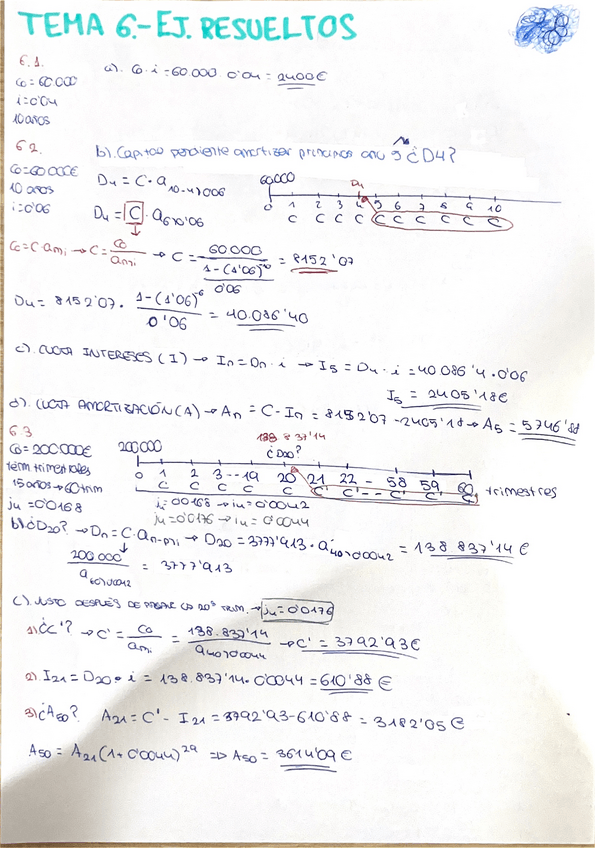 TEMA 6.- EJ. RESUELTOS
6.1.
C₀=60.000
i=0'04
10 años
a). C₀·i=60.000·0'04=2400€
6.2.
C₀=60000€
10 años
i=0'06
b). Capital pendiente amortizar principios año 5 ¿D₄?
D₄ = C·a₁₀₋₄¬0'06
D₄ = C · a₆¬0'06
60000 D₄
0 1 2 3 4 5 6 7 8 9 10
C C C C C C C C C C
C₀=C·aₙ¬ᵢ → C = C₀/aₙ¬ᵢ → C = 60000/((1-(1'06)⁻¹⁰)/0'06) = 8152'07
D₄ = 8152'07 · (1-(1'06)⁻⁶)/0'06 = 40.086'40
c). CUOTA INTERESES (I) → Iₙ=Dₙ·i → I₅ = D₄·i = 40086'4·0'06
I₅ = 2405'18€
d). CUOTA AMORTIZACIÓN (A) → Aₙ = C-Iₙ = 8152'07-2405'18 → A₅ = 5746'88
6.3
C₀=200.000€
term trimestrales
15 años → 60 trim
j₄=0'0168
138.837'14
200.000 ¿D20?
0 1 2 3 -- 19 20 21 22 - 58 59 60 trimestres
C C C C C C' C' -- C' C' C'
j₄=0'0168 → i₄=0'0042
j₄=0'0176 → i₄=0'0044
b). ¿D₂₀? → Dₙ=C·aₙ₋ₘ¬ᵢ → D₂₀ = 3777'913·a₄₀¬0'0042 = 138 837'14 €
200.000/a₆₀¬0'0042 = 3777'913
c). JUSTO DESPUÉS DE PAGAR LA 20ª TRIM. → j₄=0'0176
1) ¿C'? → C' = C₀/aₙ¬ᵢ = 138.837'14/a₄₀¬0'0044 → C' = 3792'93€
2). I₂₁ = D₂₀·i = 138.837'14·0'0044 = 610'88 €
3) ¿A₅₀? A₂₁ = C' - I₂₁ = 3792'93-610'88 = 3182'05 €
A₅₀ = A₂₁(1+0'0044)²⁹ ⇒ A₅₀ = 3614'09 €